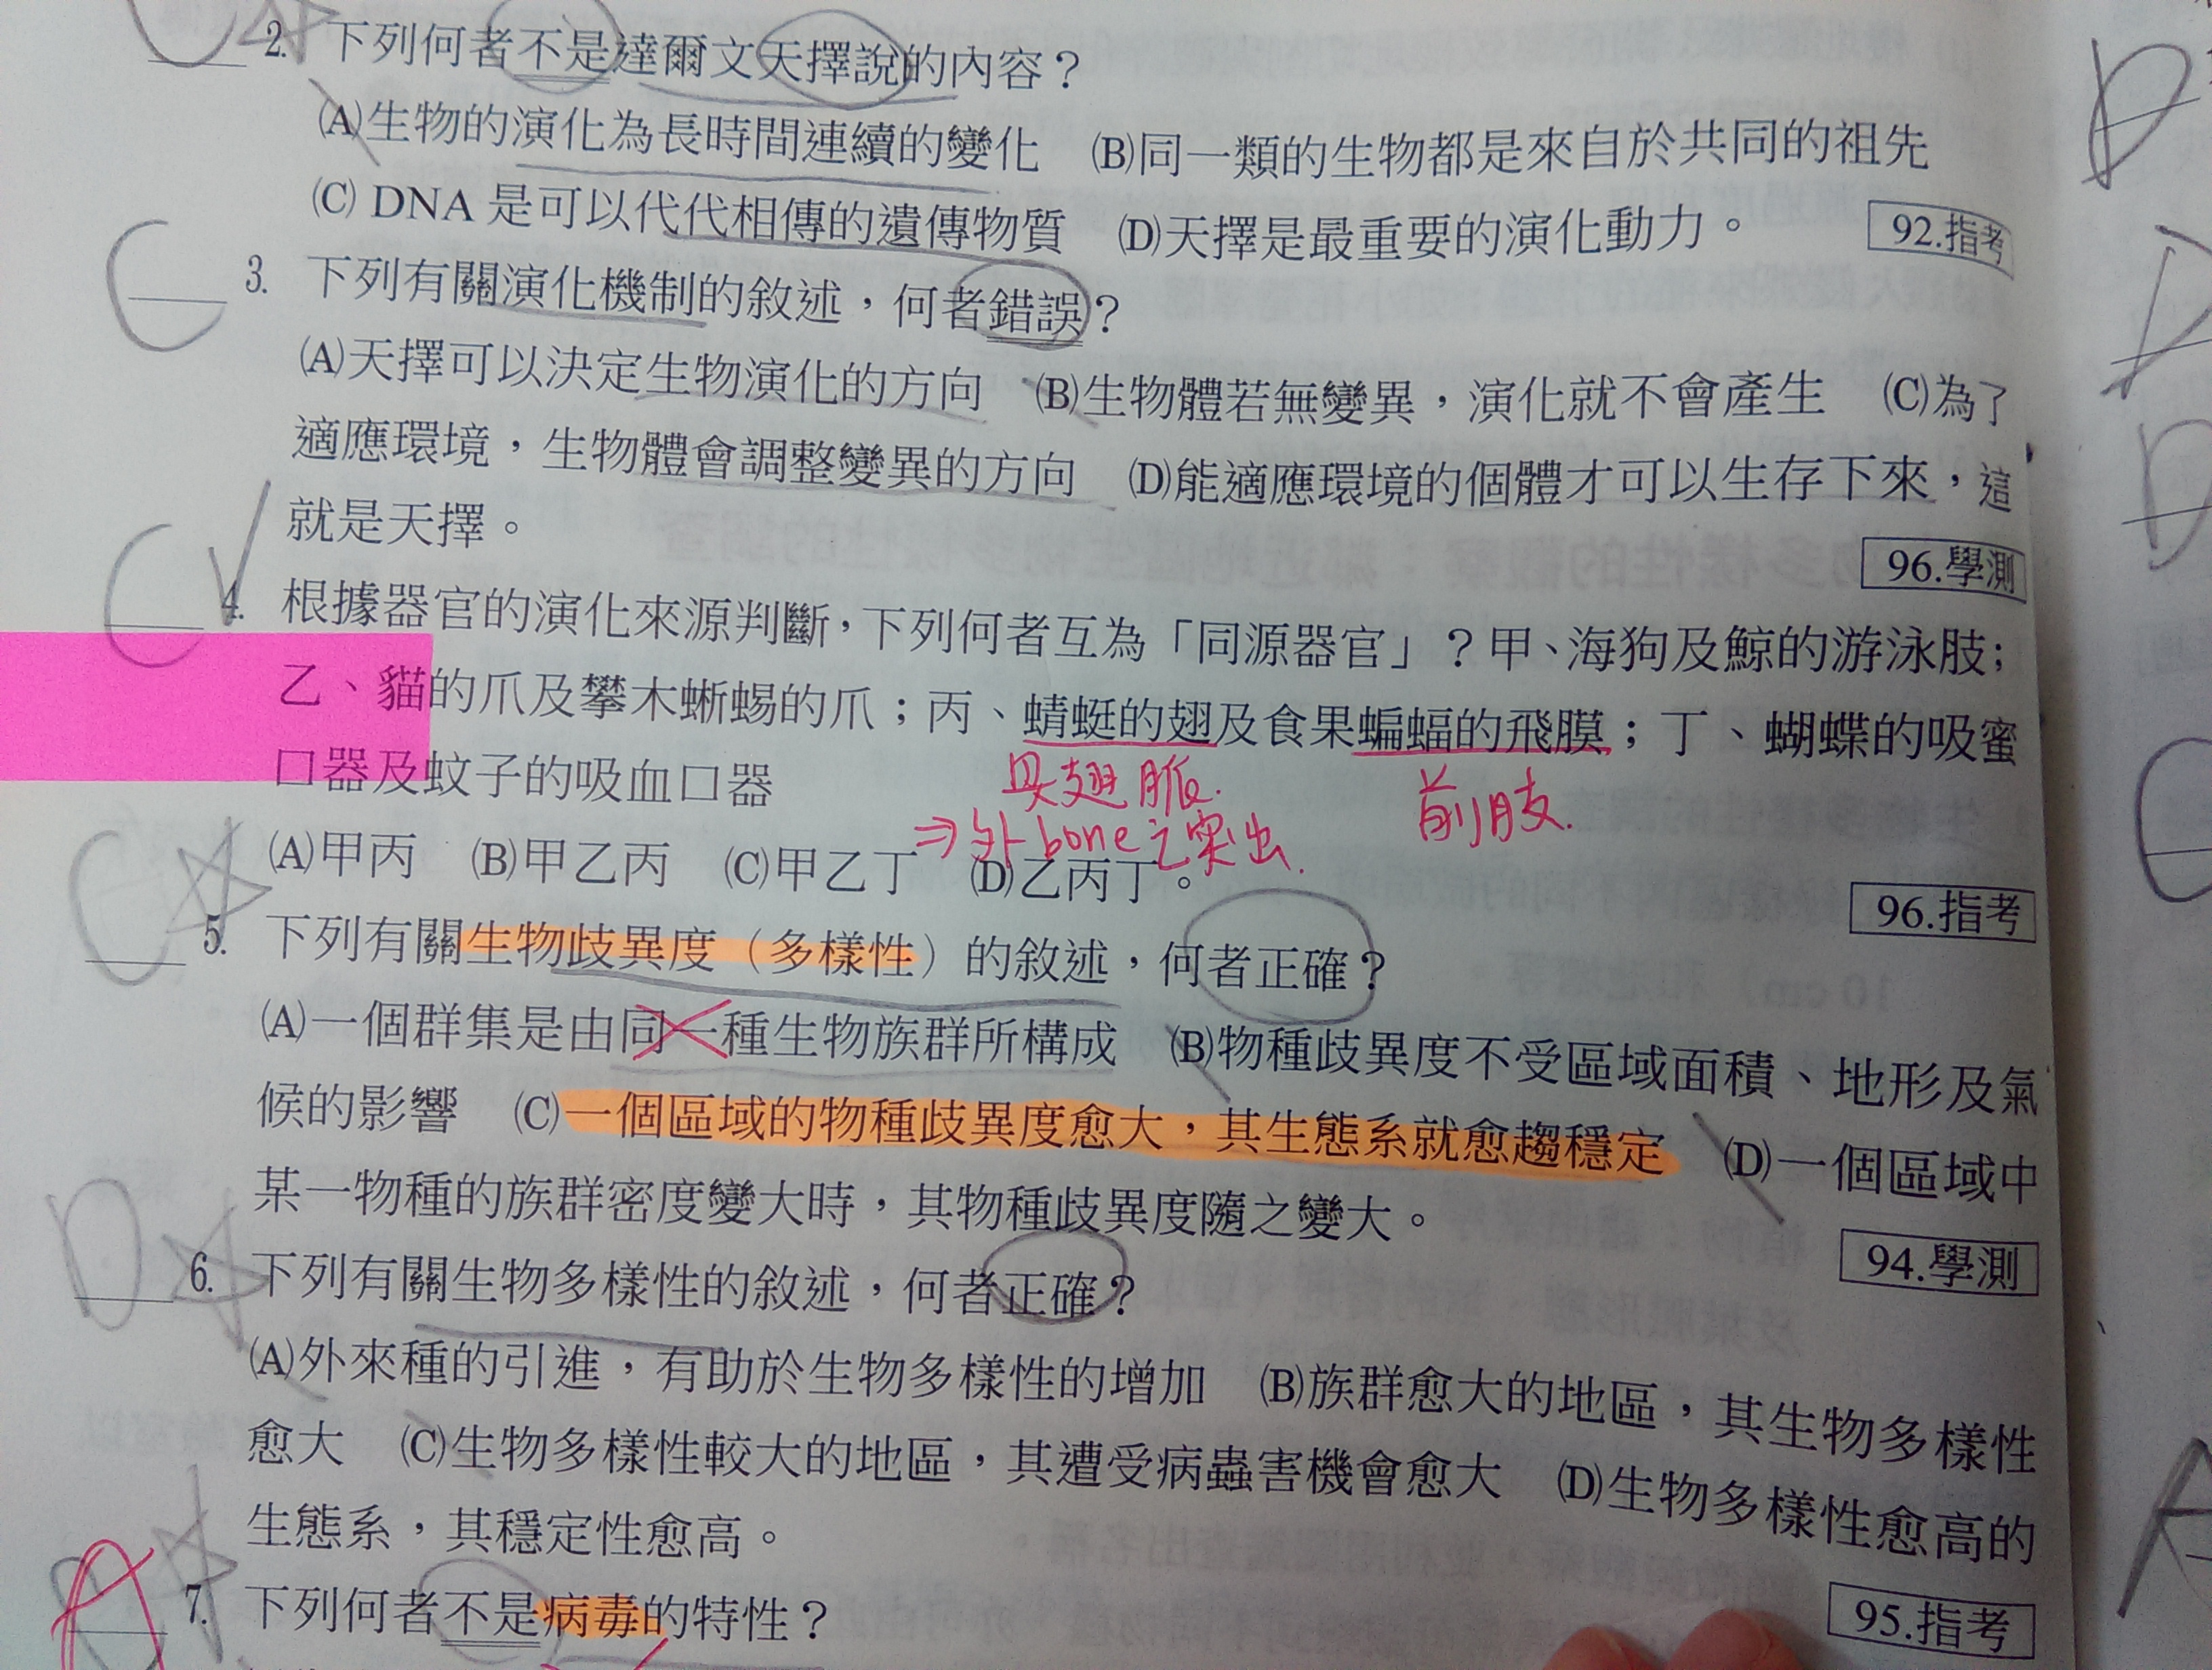 C 2. 下列何者不是達爾文天擇說的內容？
(A)生物的演化為長時間連續的變化 (B)同一類的生物都是來自於共同的祖先
(C) DNA 是可以代代相傳的遺傳物質 (D)天擇是最重要的演化動力。 92.指考
C 3. 下列有關演化機制的敘述，何者錯誤？
(A)天擇可以決定生物演化的方向 (B)生物體若無變異，演化就不會產生 (C)為了
適應環境，生物體會調整變異的方向 (D)能適應環境的個體才可以生存下來，這
就是天擇。 96.學測
C 4. 根據器官的演化來源判斷，下列何者互為「同源器官」？甲、海狗及鯨的游泳肢；
乙、貓的爪及攀木蜥蜴的爪；丙、蜻蜓的翅及食果蝙蝠的飛膜；丁、蝴蝶的吸蜜
口器及蚊子的吸血口器
具翅脈.
前肢.
⇒外bone之突出.
(A)甲丙 (B)甲乙丙 (C)甲乙丁 (D)乙丙丁。 96.指考
C 5. 下列有關生物歧異度（多樣性）的敘述，何者正確？
(A)一個群集是由同一種生物族群所構成 (B)物種歧異度不受區域面積、地形及氣
候的影響 (C)一個區域的物種歧異度愈大，其生態系就愈趨穩定 (D)一個區域中
某一物種的族群密度變大時，其物種歧異度隨之變大。 94.學測
D 6. 下列有關生物多樣性的敘述，何者正確？
(A)外來種的引進，有助於生物多樣性的增加 (B)族群愈大的地區，其生物多樣性
愈大 (C)生物多樣性較大的地區，其遭受病蟲害機會愈大 (D)生物多樣性愈高的
生態系，其穩定性愈高。 95.指考
A 7. 下列何者不是病毒的特性？
D
D
D
C
A